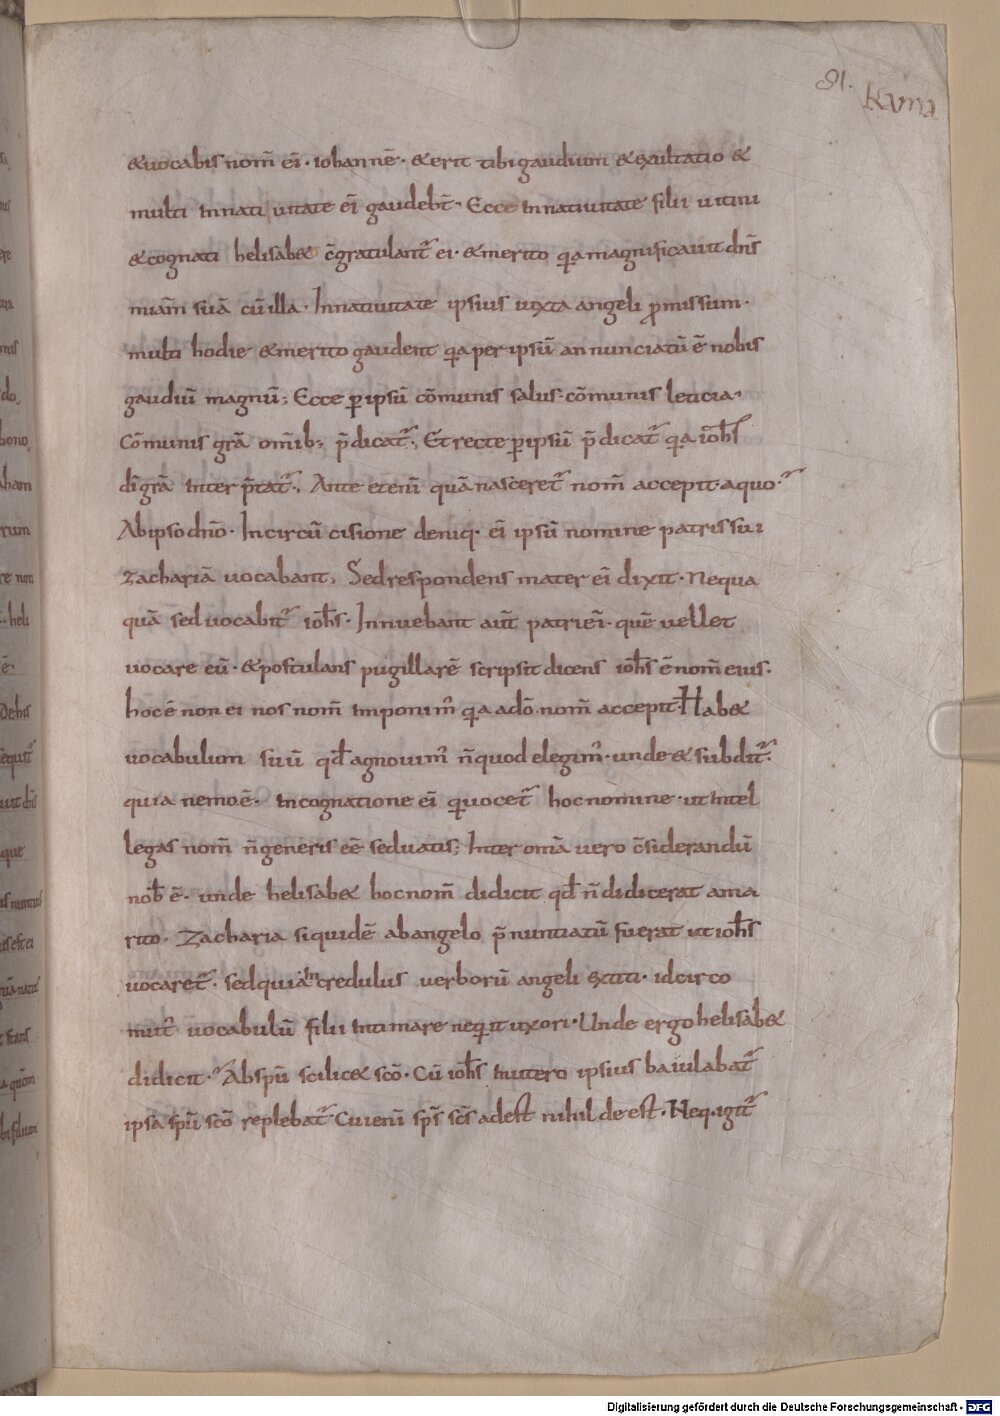 91.
&uocabis nom̅ ei̅ · iohanne̅ · &erit tibi gaudium &exultatio &
multi innatiuitate ei̅ gaudeb̅t · Ecce innatiuitate filii uicini
&cognati helisab& c̅gratulant᷑ ei · &merito q̲a magnificauit dn̅s
mia̅m sua̅ cu̅ illa · Innatiuitate ipsius iuxta angeli ꝓmissum ·
multi hodie &merito gaudent q̲a per ipsu̅ annunciatu̅ e̅ nobis
gaudiu̅ magnu̅ ; Ecce ꝑ ipsu̅ co̅munis salus · co̅munis leticia ·
Co̅munis gr̅a om̅ib; p̅dicat᷑ ; Et recte ꝑ ipsu̅ p̅dicat᷑ q̲a ioh̅s
di̅ gr̅a inter p̅tat᷑ ; Ante eteni̅ qua̅ nasceret᷑ nom̅ accepit · aquo ·
Abipso dn̅o · In circu̅ cisione deniq · ei̅ ipsu̅ nomine patris sui
zacharia̅ uocabant ; Sed respondens mater ei̅ dixit · Nequa
qua̅ sed uocabit᷑ ioh̅s · Innuebant aut̅ patri ei̅ · que̅ uellet
uocare eu̅ · &postulans pugillare̅ scripsit dicens ioh̅s e̅ nom̅ eius ·
hoc e̅ non ei nos nom̅ imponim᷒ q̲a ado̅ nom̅ accepit · Hab&
uocabulum suu̅ qd̅ agnouim᷒ n̅ quod elegim᷒ · unde & subdit᷑ ·
quia nemo e̅ · incognatione ei̅ qui uocet᷑ hoc nomine · ut intel
legas nom̅ n̅ generis ee̅ sed uatis ; Inter om̅a uero c̅siderandu̅
nob̅ e̅ · unde helisab& hoc nom̅ didicit qd̅ n̅ didicerat ama
rito · Zacharia siquide̅ abangelo p̅nuntiatu̅ fuerat ut ioh̅s
uocaret᷑ · sed quia incredulus uerboru̅ angeli extiti · idcirco
mut᷒ uocabulu̅ filii intimare nequit uxori · Unde ergo helisab&
didicit · Ab sp̅u scilic& sc̅o · Cu̅ ioh̅s inutero ipsius baiulabat᷑
ipsa sp̅u sc̅o replebat᷑ · Cui eni̅ sp̅s sc̅s adest nihil deest · Neq · igit᷑